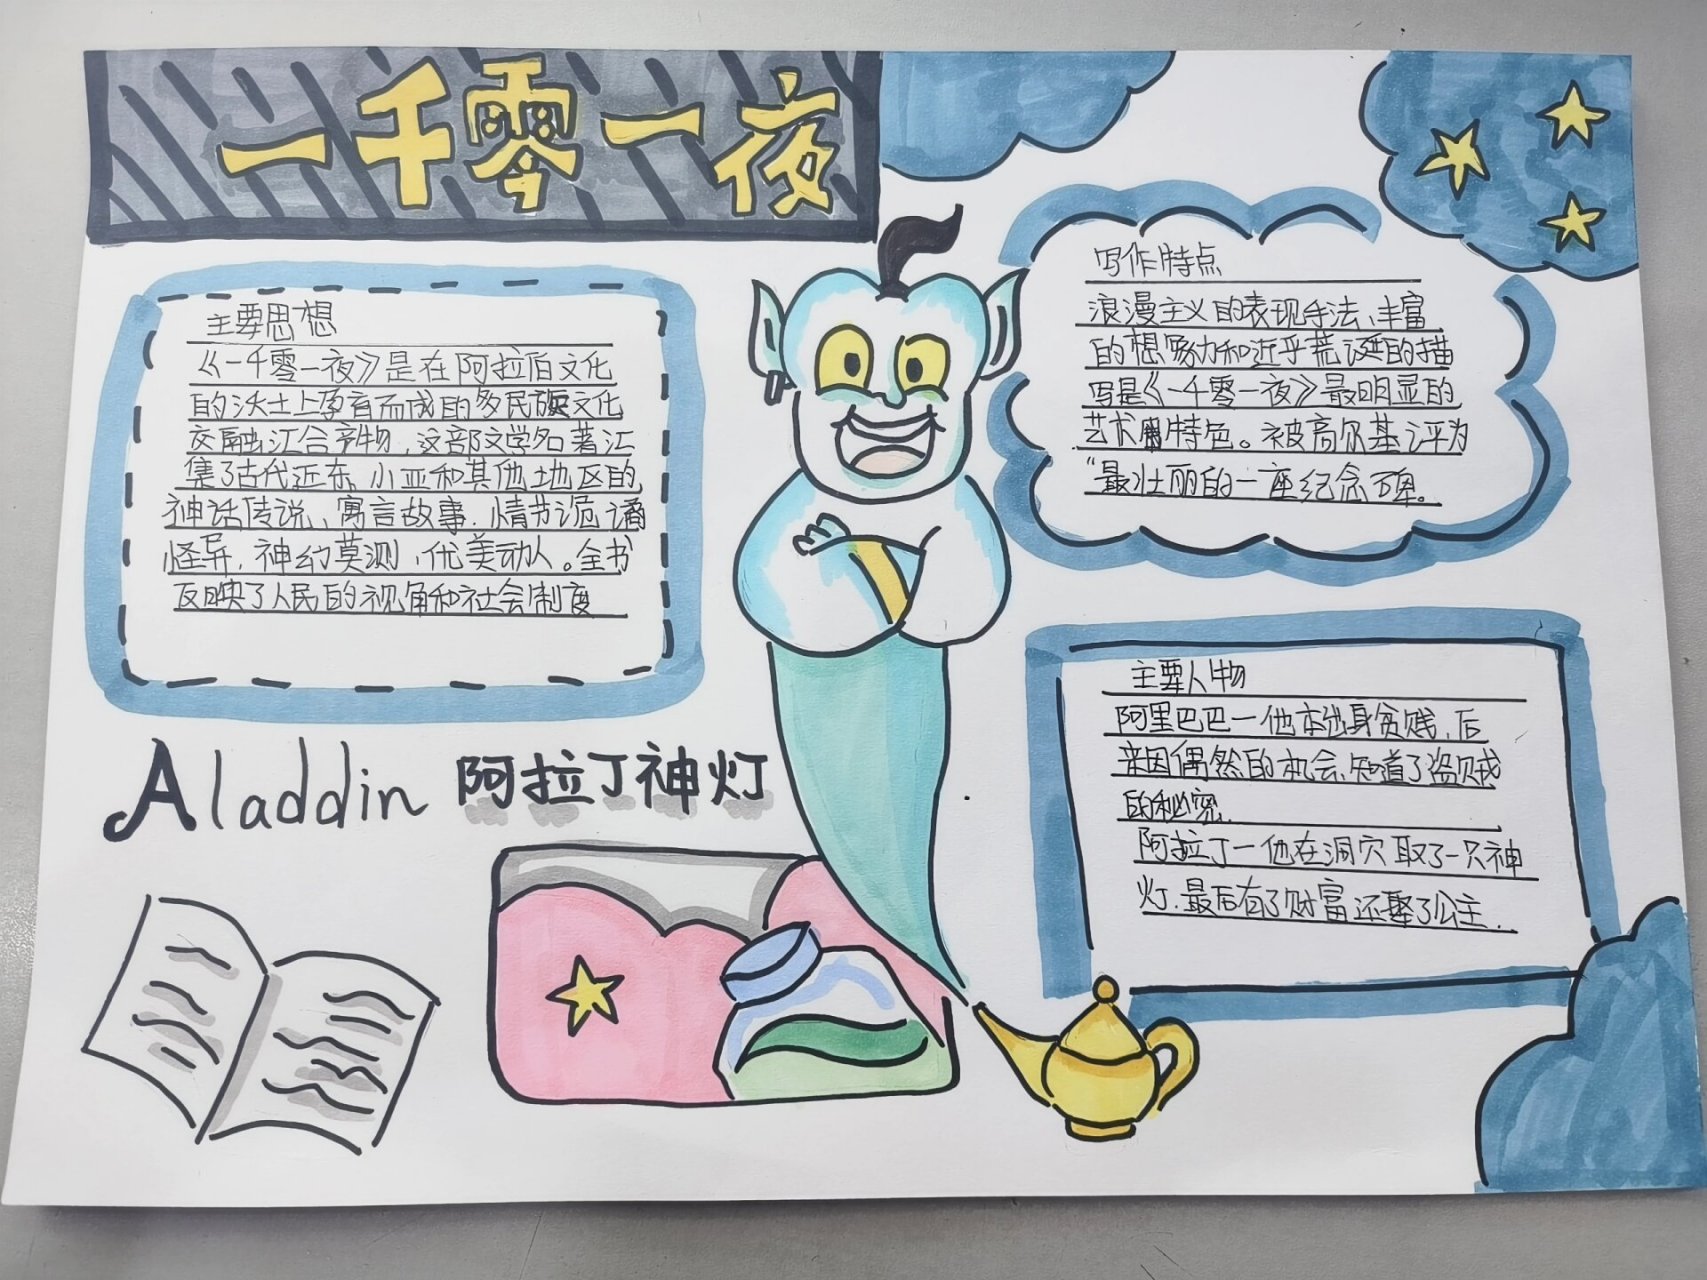 一千零一夜
主要思想
《一千零一夜》是在阿拉伯文化
的沃土上孕育而成的多民族文化
交融汇合产物，这部文学名著汇
集了古代近东、小亚和其他地区的
神话传说、寓言故事．情节诡谲
怪异，神幻莫测，优美动人。全书
反映了人民的视角和社会制度
写作特点
浪漫主义的表现手法、丰富
的想象力和近乎荒诞的描
写是《一千零一夜》最明显的
艺术特色。被高尔基评为
“最壮丽的一座纪念碑。
Aladdin 阿拉丁神灯
主要人物
阿里巴巴一他本出身贫贱，后
来因偶然的机会，知道了盗贼
的秘密．
阿拉丁一他在洞穴取了一只神
灯．最后有了财富还娶了公主．